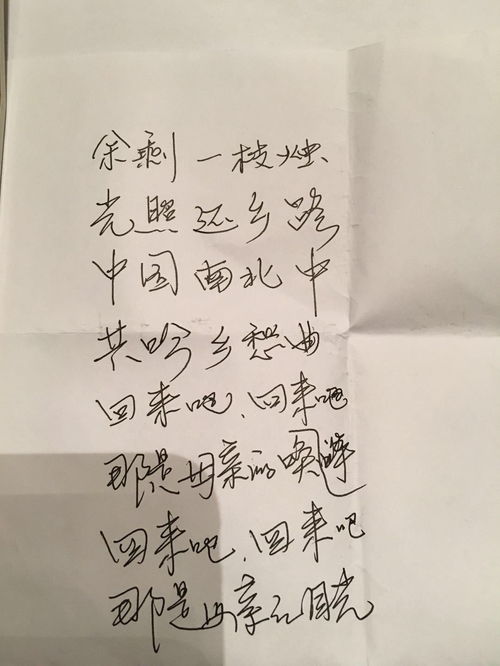 余剩一枝烛
光照还乡路
中国南北中
共吟乡愁曲
回来吧、回来吧
那是母亲的唤
回来吧、回来吧
那是母亲在目光